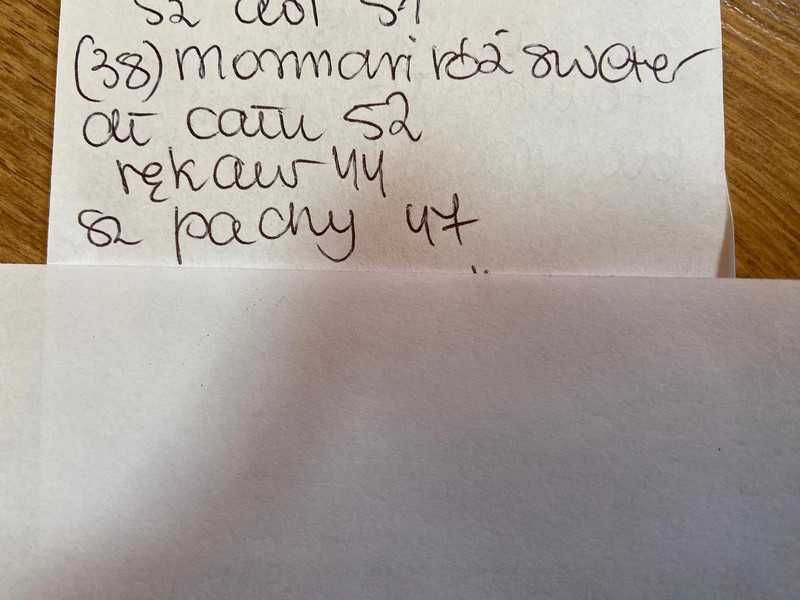 (38) monnari róż sweter
dł całk 52
rękaw 44
sz pachy 47